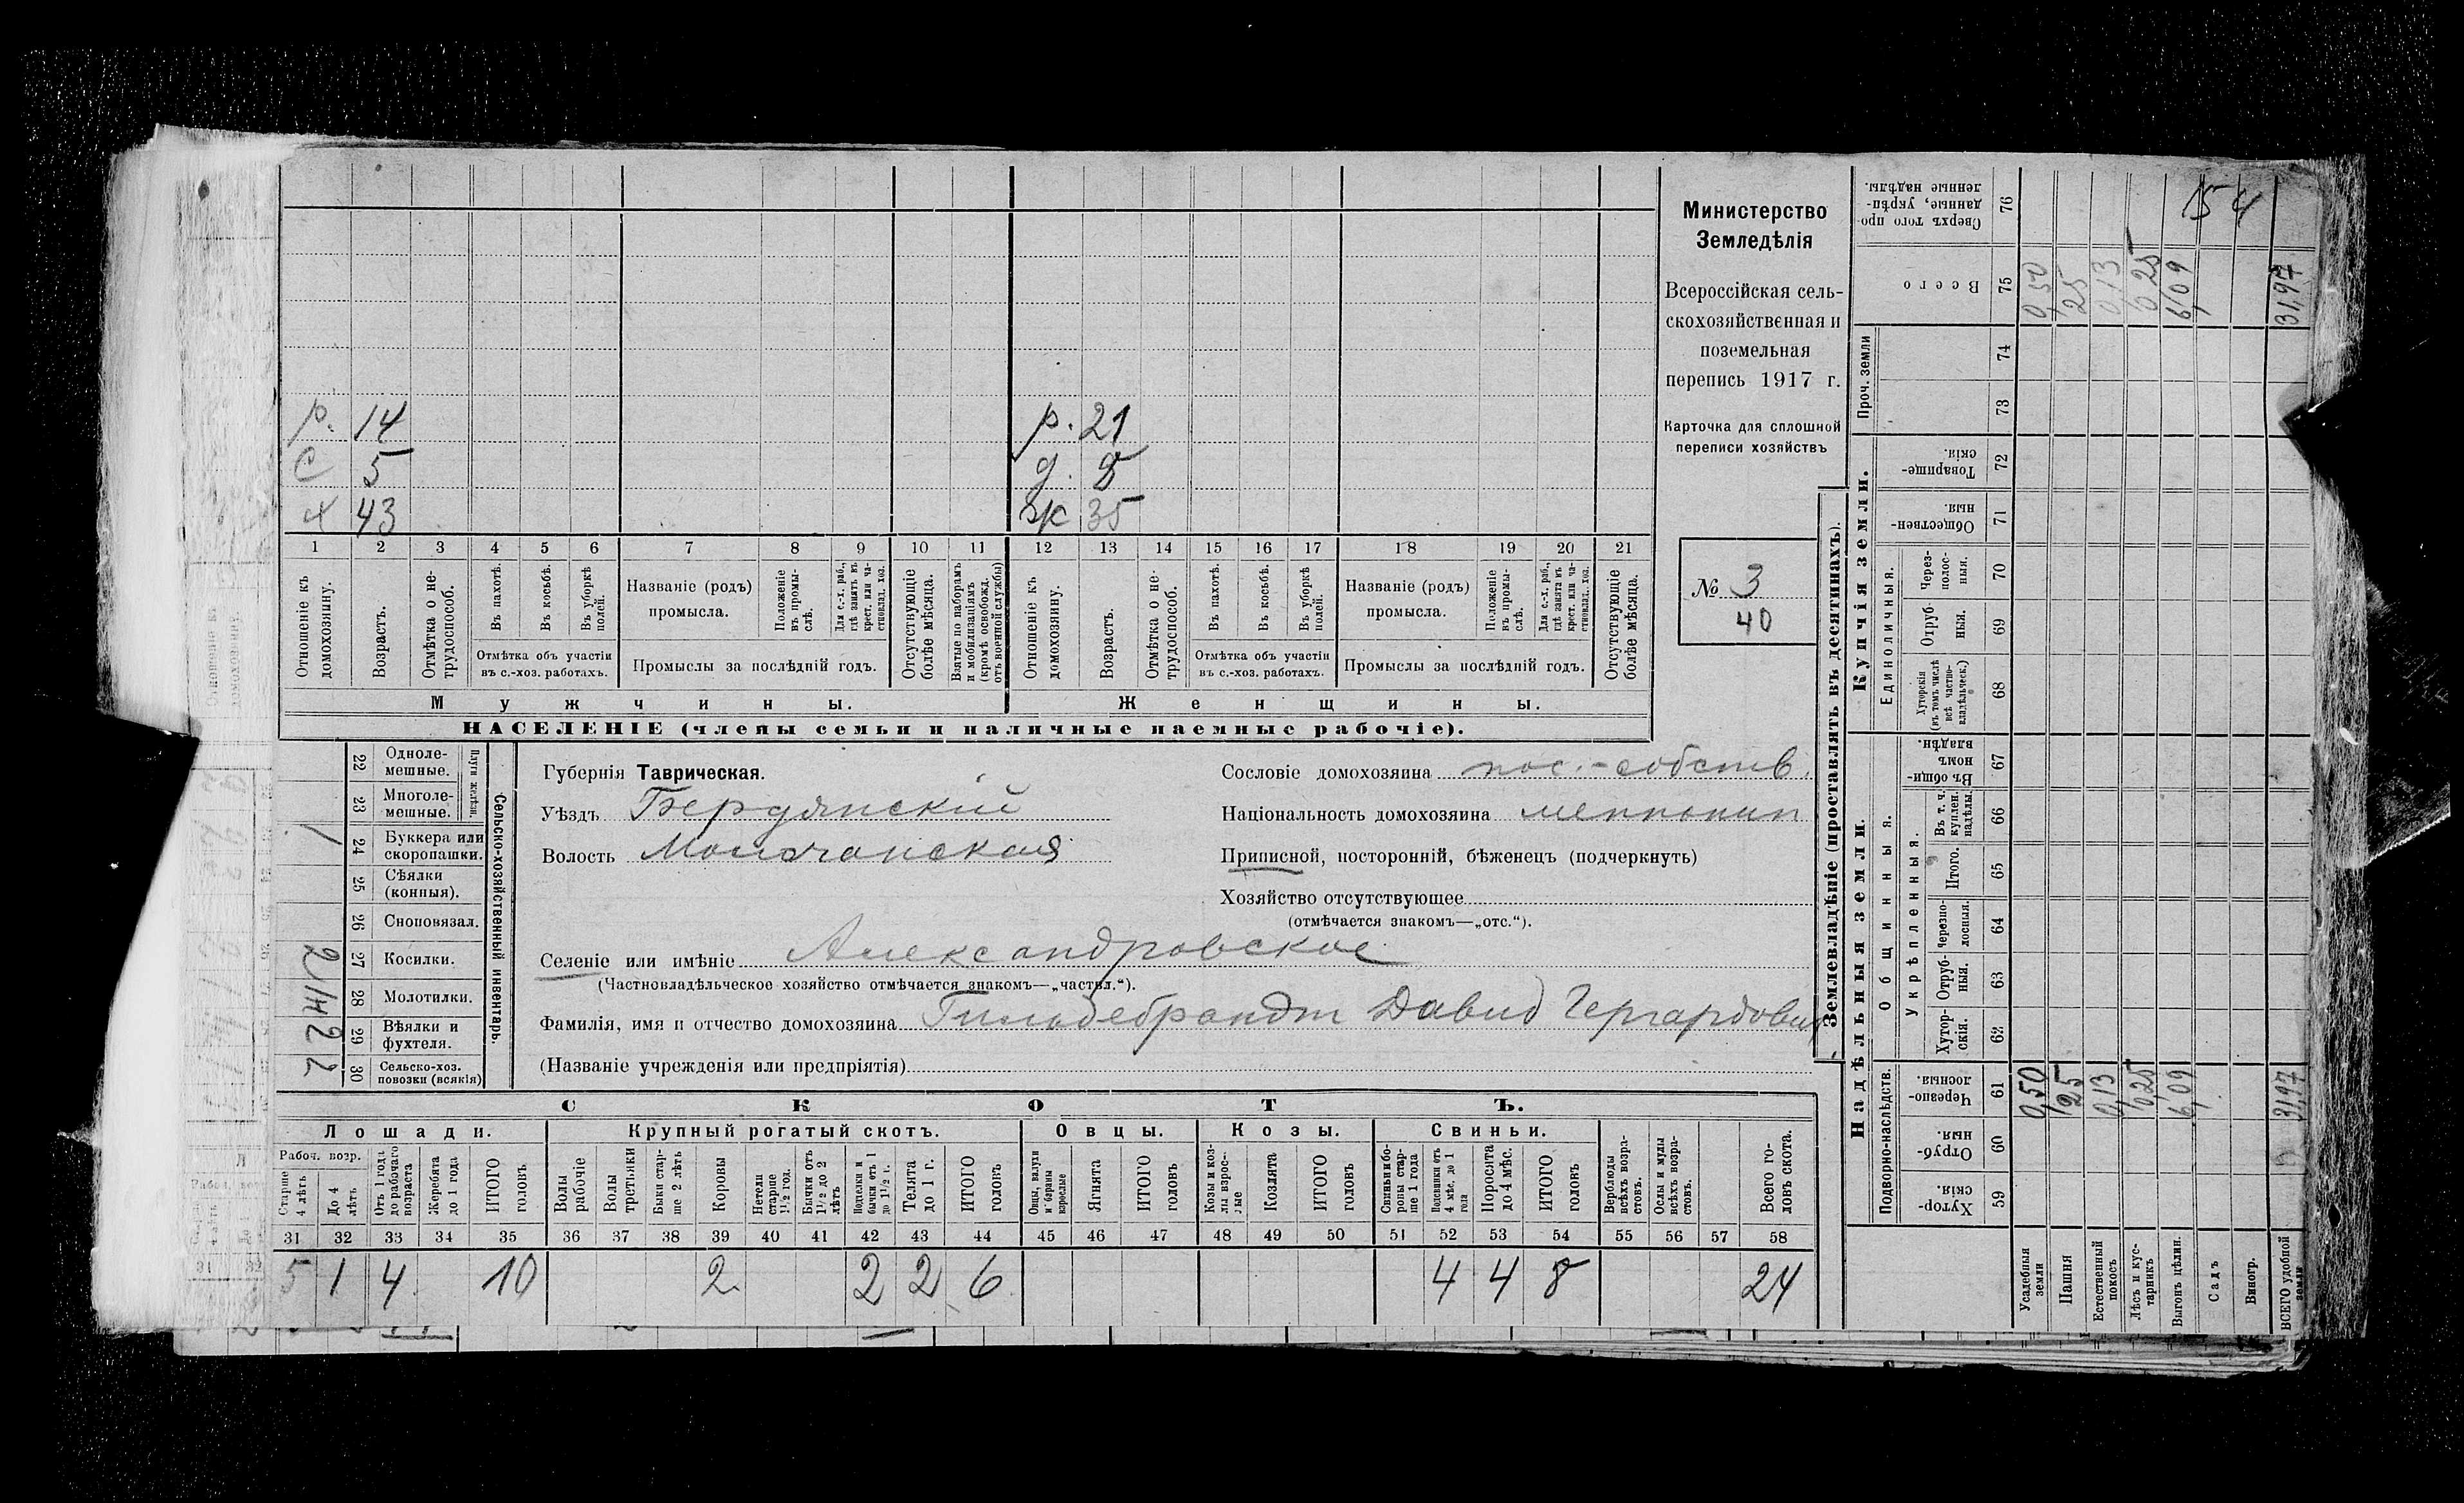 Министерство
Земледѣлія
Всероссійская сель-
скохозяйственная и
поземельная
перепись 1917 г.
Карточка для сплошной
переписи хозяйствъ
№ 3
40
р. 14 р. 21
С 5 д. 8
х 43 ж 35
1 2 3 4 5 6 7 8 9 10 11 12 13 14 15 16 17 18 19 20 21
Отношеніе къ домохозяину.
Возрастъ.
Отмѣтка о не-трудоспособ.
Въ пахотѣ.
Въ косьбѣ.
Въ уборкѣ полей.
Отмѣтка объ участіи въ с.-хоз. работахъ.
Названіе (родъ) промысла.
Положеніе въ промы-слѣ.
Для с.-х. раб., гдѣ занятъ въ крест. или ча-стновлад. хоз.
Промыслы за послѣдній годъ.
Отсутствующіе болѣе мѣсяца.
Взятые по наборамъ и мобилизаціямъ (кромѣ освобожд. отъ военной службы)
Отношеніе къ домохозяину.
Возрастъ.
Отмѣтка о не-трудоспособ.
Въ пахотѣ.
Въ косьбѣ.
Въ уборкѣ полей.
Отмѣтка объ участіи въ с.-хоз. работахъ.
Названіе (родъ) промысла.
Положеніе въ промы-слѣ.
Для с.-х. раб., гдѣ занятъ въ крест. или ча-стновлад. хоз.
Промыслы за послѣдній годъ.
Отсутствующіе болѣе мѣсяца.
Мужчины. Женщины.
НАСЕЛЕНІЕ (члены семьи и наличные наемные рабочіе).
Сельско-хозяйственный инвентарь.
Плуги желѣзн.
22 Одноле-мешные.
23 Многоле-мешные.
24 Буккера или скоропашки. 1
25 Сѣялки (конныя).
26 Сноповязал.
27 Косилки. 2
28 Молотилки.
29 Вѣялки и фухтеля. 2
30 Сельско-хоз. повозки (всякія) 2
Губернія Таврическая.
Уѣздъ Бердянскій
Волость Молочанская
Сословіе домохозяина пос.-собств.
Національность домохозяина меннонит
Приписной, посторонній, бѣженецъ (подчеркнуть)
Хозяйство отсутствующее
(отмѣчается знакомъ—„отс.“).
Селеніе или имѣніе Александровское
(Частновладѣльческое хозяйство отмѣчается знакомъ—„частвл.“).
Фамилія, имя и отчество домохозяина Гильдебрандт Давид Гергардович
(Названіе учрежденія или предпріятія)
СКОТЪ.
Лошади. Крупный рогатый скотъ. Овцы. Козы. Свиньи.
Рабоч. возр.
Старше 4 лѣтъ
До 4 лѣтъ
Отъ 1 года до рабочаго возраста
Жеребята до 1 года
ИТОГО головъ
Волы рабочіе
Волы третьяки
Быки стар-ше 2 лѣтъ
Коровы
Нетели старше 1½ год.
Бычки отъ 1½ до 2 лѣтъ
Подтелки и бычки отъ 1 до 1½ г.
Телята до 1 г.
ИТОГО головъ
Овцы, валухи и бараны взрослые
Ягнята
ИТОГО головъ
Козы и коз-лы взрос-лые
Козлята
ИТОГО головъ
Свиньи и бо-ровы стар-ше 1 года
Подсвинки отъ 4 мѣс. до 1 года
Поросята до 4 мѣс.
ИТОГО головъ
Верблюды всѣхъ возра-стовъ.
Ослы и мулы всѣхъ возра-стовъ.
Всего го-ловъ скота.
31 32 33 34 35 36 37 38 39 40 41 42 43 44 45 46 47 48 49 50 51 52 53 54 55 56 57 58
5 1 4 10 2 2 2 6 4 4 8 24
Землевладѣніе (проставлять въ десятинахъ).
Надѣльныя земли. Купчія земли. Проч. земли
Подворно-наслѣдств. Общинныя. Укрѣпленныя. Единоличныя.
Хутор-скія. 59
Отруб-ныя. 60
Черезпо-лосныя. 61
Хутор-скія. 62
Отруб-ныя. 63
Черезпо-лосныя. 64
Итого. 65
Въ т. ч. куплен. надѣлы. 66
Въ общи-номъ владѣн. 67
Хуторскія (въ томъ числѣ всѣ частно-владѣльческ.) 68
Отруб-ныя. 69
Через-полос-ныя. 70
Обществен-ныя. 71
Товарище-скія. 72
73
74
Всего 75
Сверхъ того про-данные, укрѣп-ленные надѣлы. 76
Усадебныя земли 0,50 0,50
Пашня 25 25
Естественный покосъ 0,13 0,13
Лѣсъ и кус-тарникъ 0,25 0,25
Выгонъ цѣлин. 6,09 6,09
Садъ
Виногр.
ВСЕГО удобной земли 31,97 31,97
154